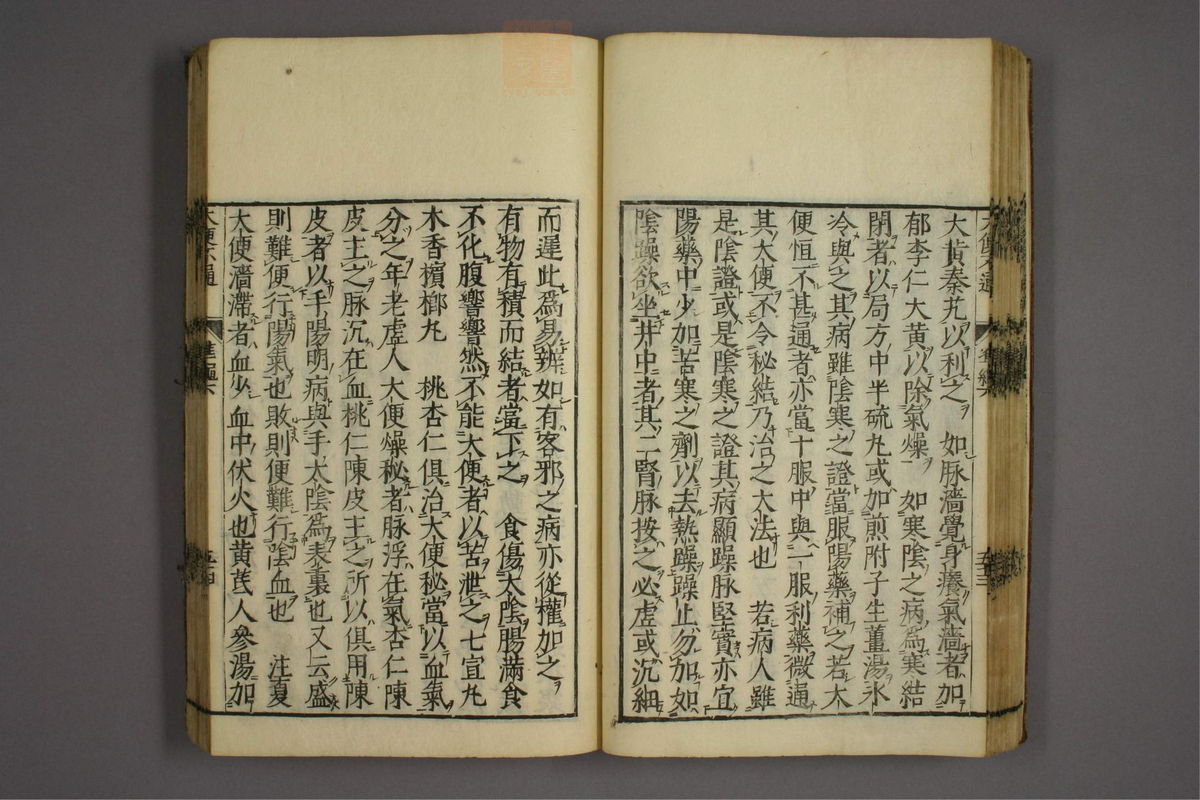 大黃秦艽以利之　如脉濇覺身癢氣濇者加
郁李仁大黃以除氣燥　如寒陰之病爲寒結
閉者以局方中半硫丸或加煎附子生薑湯氷
冷與之其病雖陰寒之證當服陽藥補之若大
便恒不甚通者亦當十服中與一服利藥微通
其大便不令秘結乃治之大法也　若病人雖
是陰證或是陰寒之證其病顯躁脉堅實亦宜
陽藥中少加苦寒之劑以去熱躁躁止勿加如
陰躁欲坐井中者其二腎脉按之必虛或沉細
而遲此爲易辨如有客邪之病亦從權加之
有物有積而結者當下之　食傷太陰腸滿食
不化腹響響然不能大便者以苦泄之七宣丸
木香檳榔丸　桃杏仁俱治大便秘當以血氣
分之年老虛人大便燥秘者脉浮在氣杏仁陳
皮主之脉沉在血桃仁陳皮主之所以俱用陳
皮者以手陽明病與手太陰爲表裏也又云盛
則難便行陽氣也敗則便難行陰血也　注夏
大便濇滯者血少血中伏火也黃芪人參湯加
大便不通